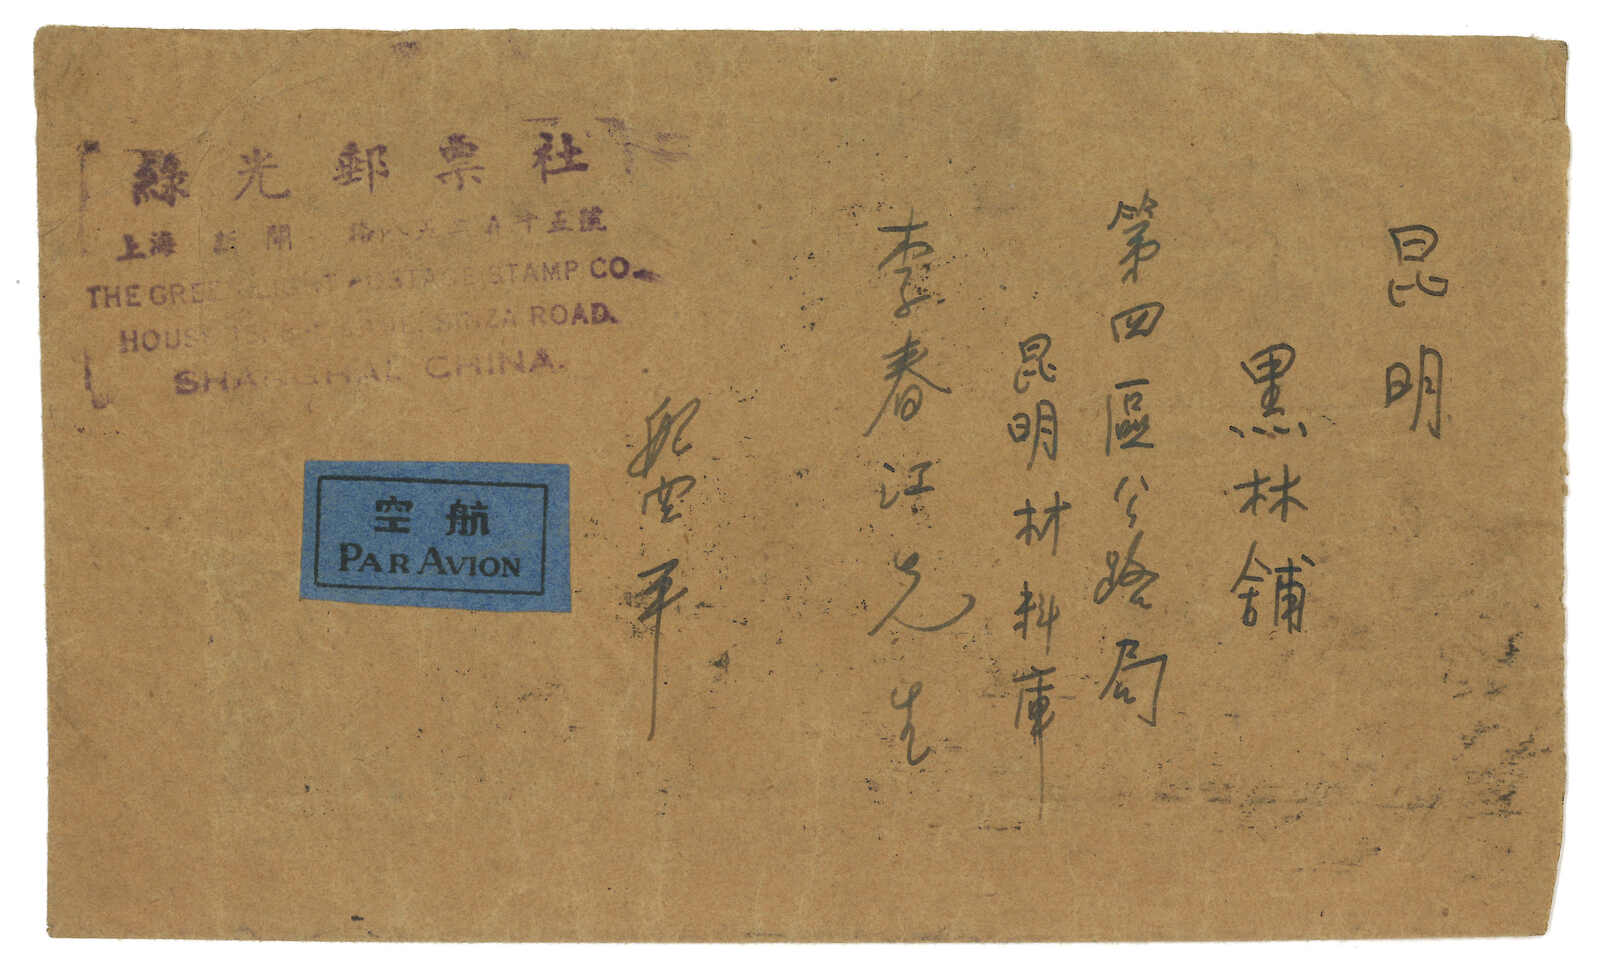 昆明
黑林舖
第四區公路局
昆明材料庫
李春江先生
航空平
綠光郵票社
上海 新閘 路 五號
THE POSTAGE STAMP CO.
SINZA ROAD.
SHANGHAI CHINA.
空航
PAR AVION